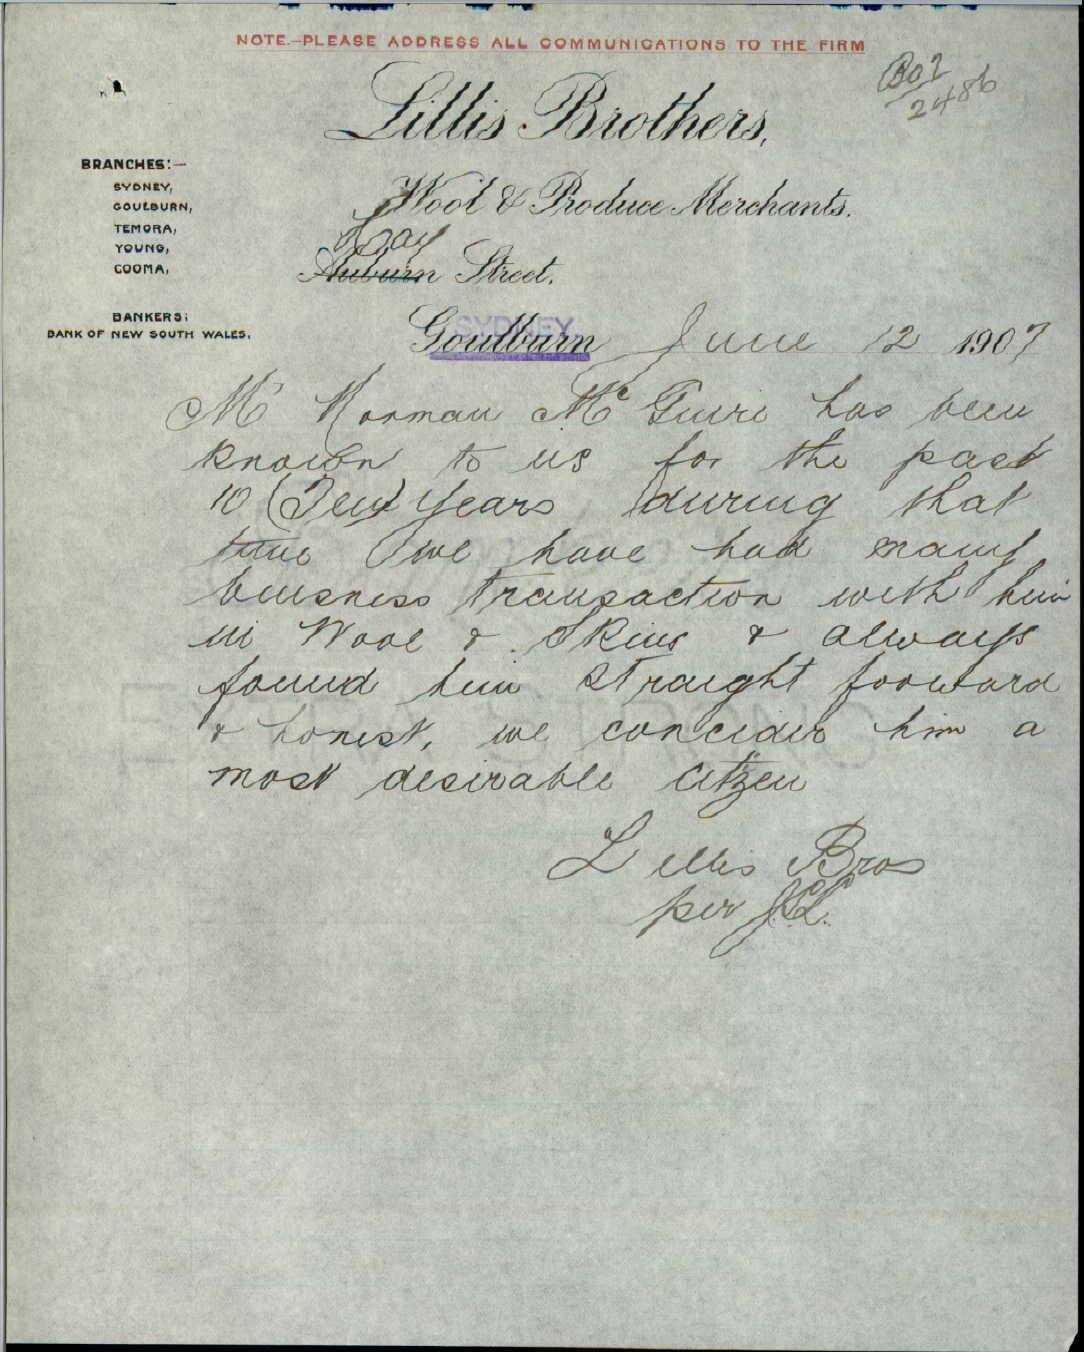 NOTE.—PLEASE ADDRESS ALL COMMUNICATIONS TO THE FIRM
B07
2486
Lillis Brothers,
BRANCHES:—
SYDNEY,
GOULBURN,
TEMORA,
YOUNG,
COOMA,
Wool & Produce Merchants.
Hay
Auburn Street.
BANKERS:
BANK OF NEW SOUTH WALES.
SYDNEY.
Goulburn June 12 1907
Mr Norman Mc Guire has been
known to us for the past
10 (Ten) years during that
time we have had many
buisness transaction with him
in Wool & Skins & always
found him straight forward
& honest, we concider him a
most desirable citizen
Lillis Bros
per